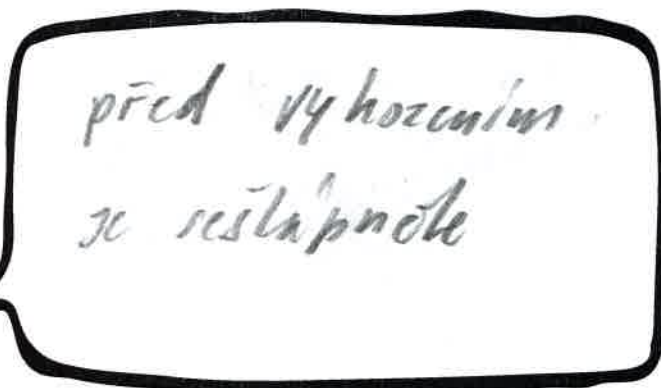 před vyhozením
je sešlápněte